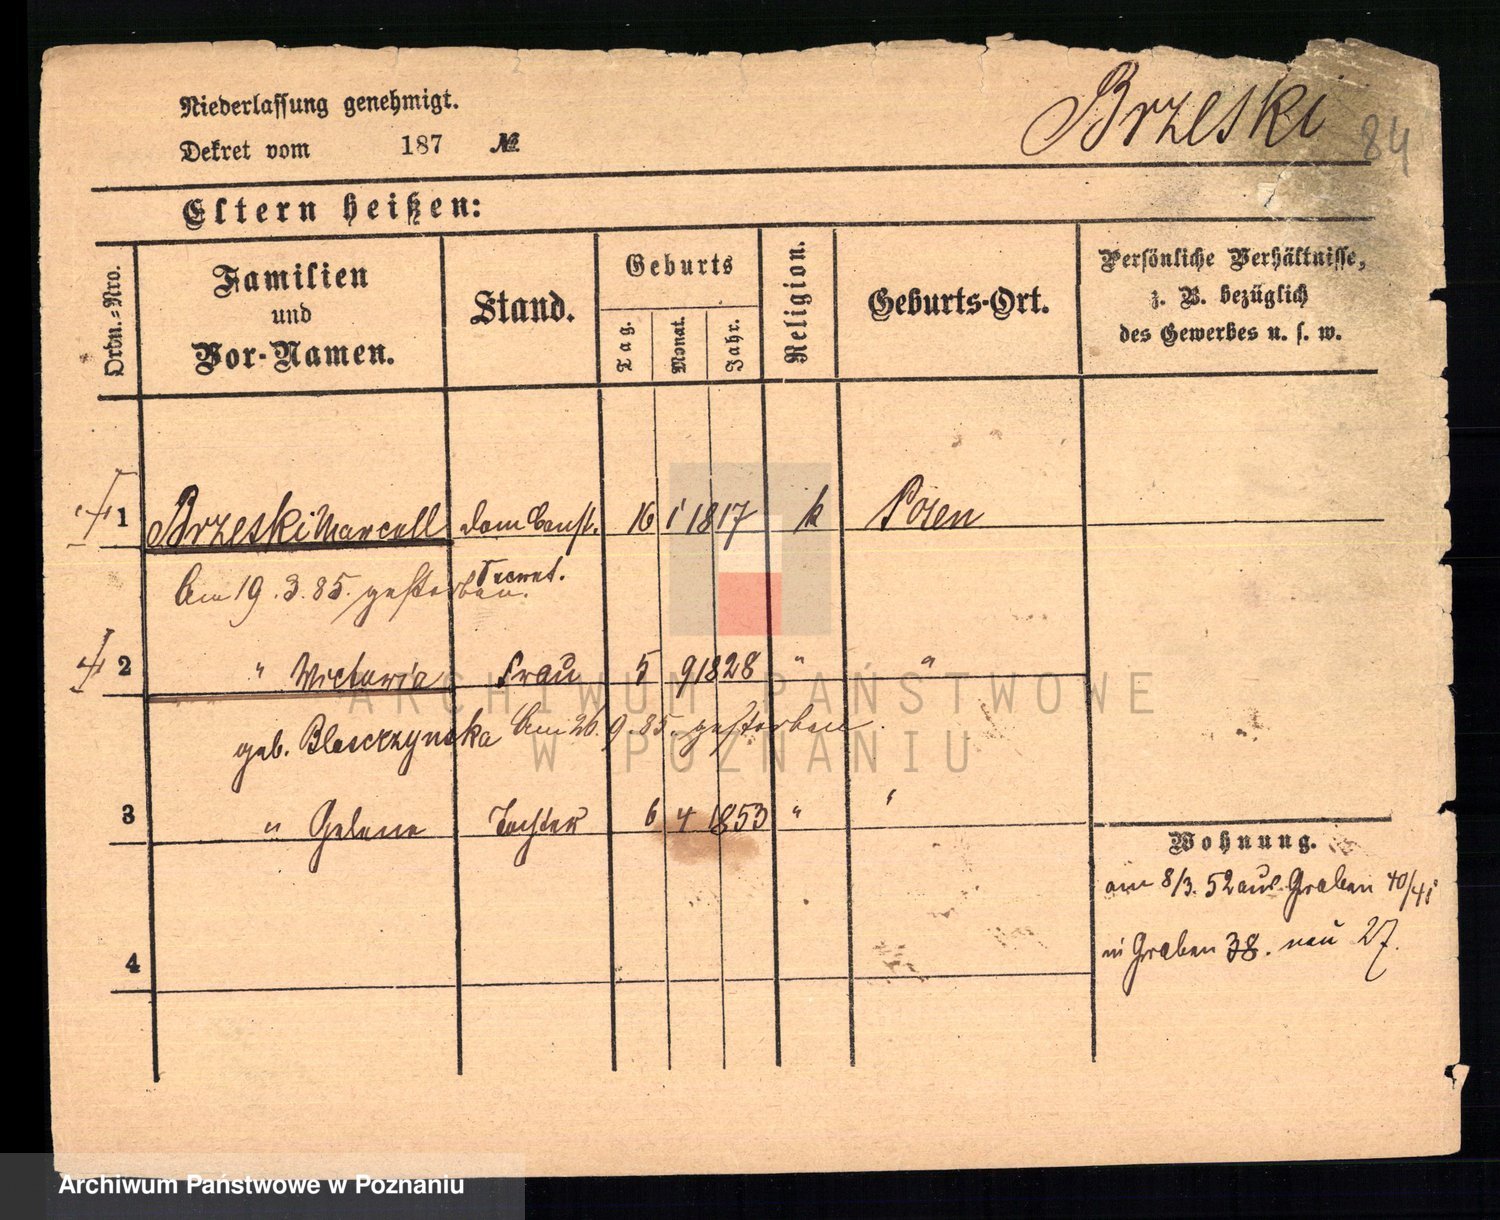 Niederlassung genehmigt.
Dekret vom 187 №
Brzeski 84
Eltern heißen:
Ordn.-Nro.
Familien und Vor-Namen.
Stand.
Geburts
Tag. Monat. Jahr.
Religion.
Geburts-Ort.
Persönliche Verhältnisse, z. B. bezüglich des Gewerbes u. s. w.
1 Brzeski Marcell 16 1 1817 k Posen
Am 19. 3. 85. gestorben.
2 " Victoria Frau 5 9 1828 " "
geb. Am 26. 9. 85. gestorben
3 " Helene Tochter 6 4 1853 " "
4
Wohnung.
am 8/3. 52 aus Graben 40/41
in Graben 38. neu 27.
ARCHIWUM PAŃSTWOWE
W POZNANIU
Archiwum Państwowe w Poznaniu